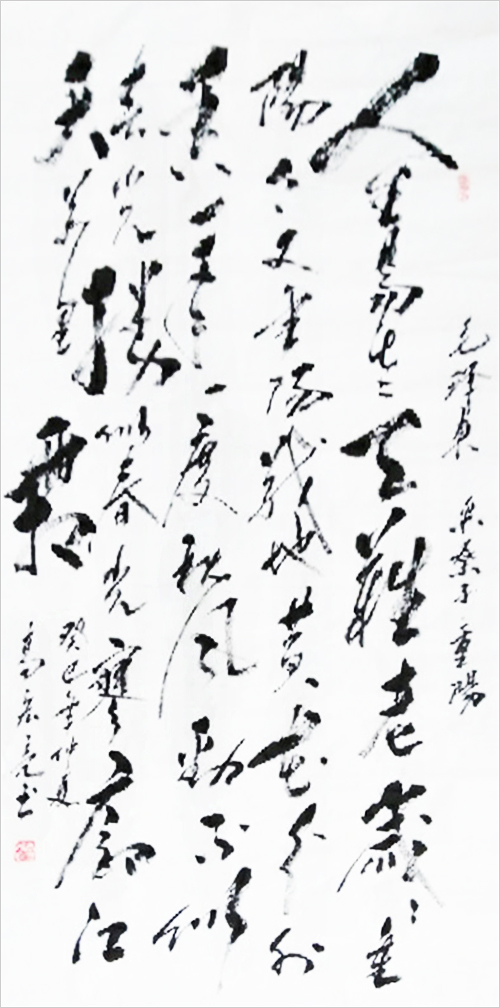 毛澤東 采桑子重陽
人生易老天難老歲〻重
陽今又重陽戰地黄花分外
香一年一度秋風勁不似
春光勝似春光寥廓江
天萬里霜
癸巳年仲夏
高宏亮书